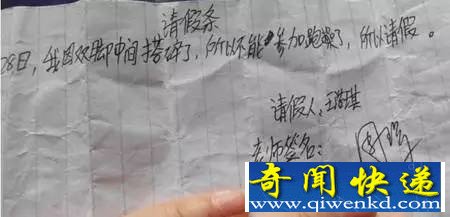 请假条
28日，我因双脚中间搭碎了，所以不能参加跑操了，所以请假。
请假人：王
老师签名：
奇闻快递
www.qiwenkd.com